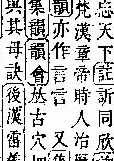 忘天下註訢同欣
梵漢章帝時人治歷
韻亦作言言 又
集韻韻會𠀤古穴
與其母訣 後漢雷